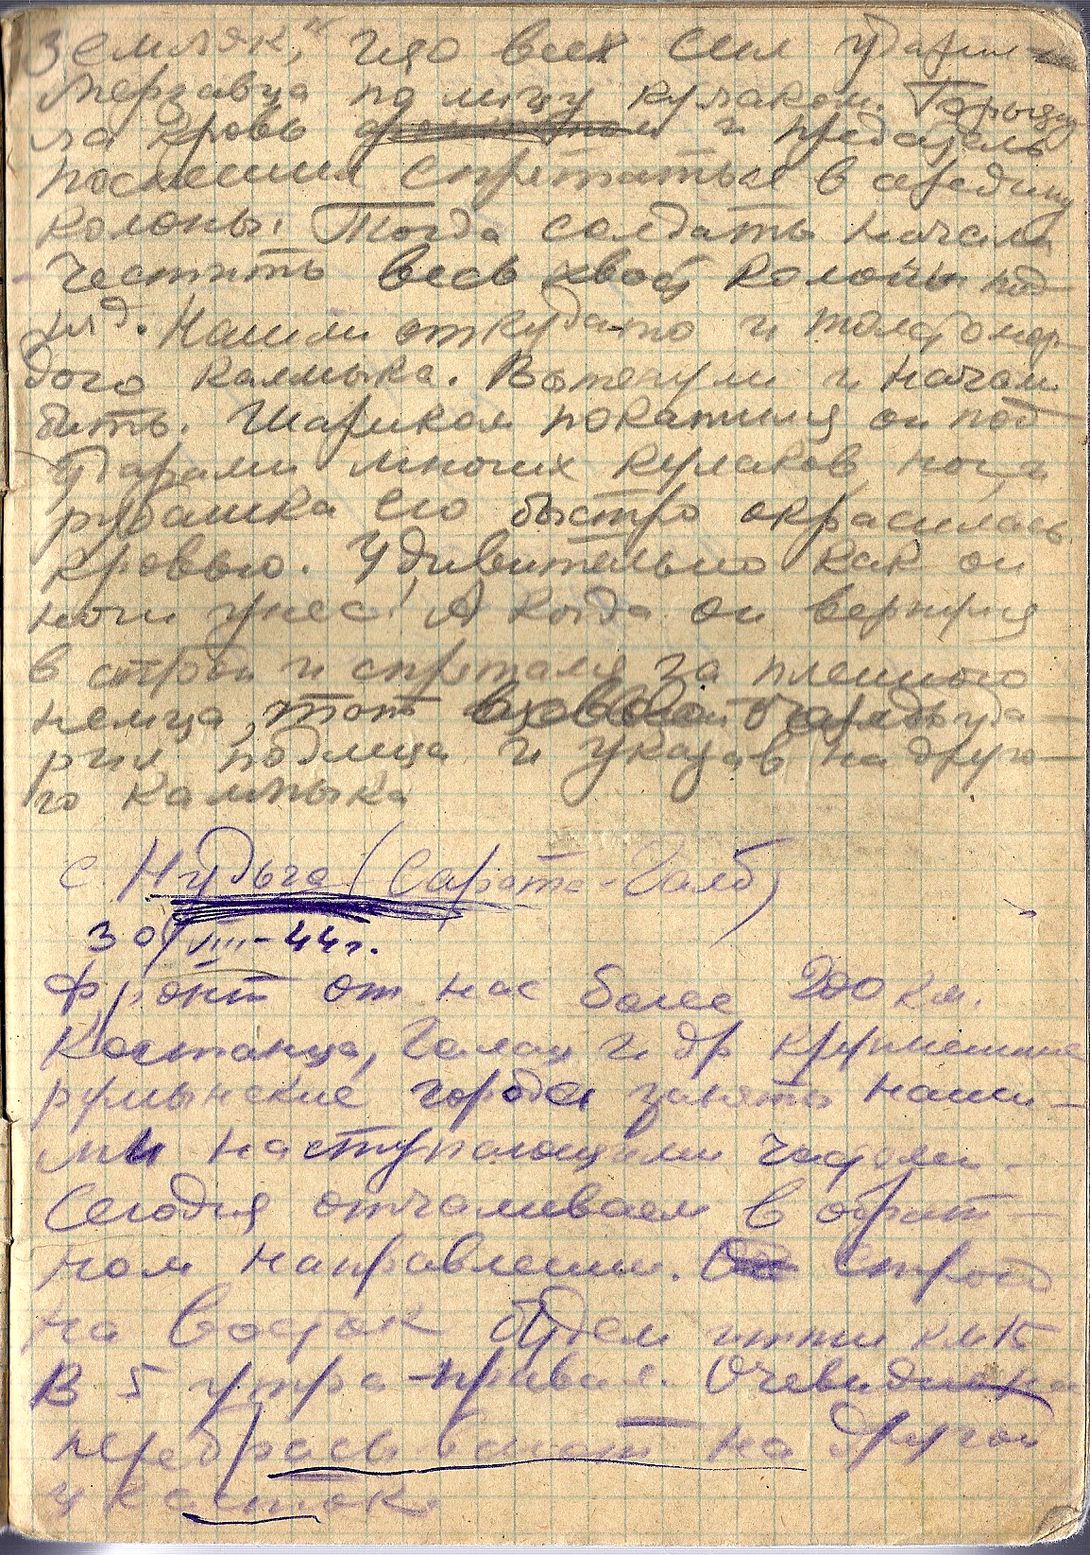 Земляк," что всех сил ударил
мерзавца по лицу кулаком.
ла кровь и предатель
поспешил спрятаться в средину
колоны. Тогда солдаты начали
честить весь хвост колоны под-
ряд. Нашли откуда-то и толстомор-
дого калмыка. Вытянули и начали
бить. Шариком покатился он под
ударами многих кулаков, ног и
рубашка его быстро окрасилась
кровью. Удивительно как он
ноги унес! А когда он вернулся
в строй и спрятался за пленного
немца, тот уда-
рил подлеца и указав на друго-
го калмыка
с. Нудьга (Сарата-Галб)
30/VIII-44г.
Фронт от нас более 200 км.
Костанца, Галац и др крупнейшие
румынские города заняты наши-
ми наступающими частями.
Сегодня отчаливаем в обрат-
ном направлении. Строго
на восток будем итти км 15
В 5 утра-привал. Очевидно на
перебрасывают на другой
участок.